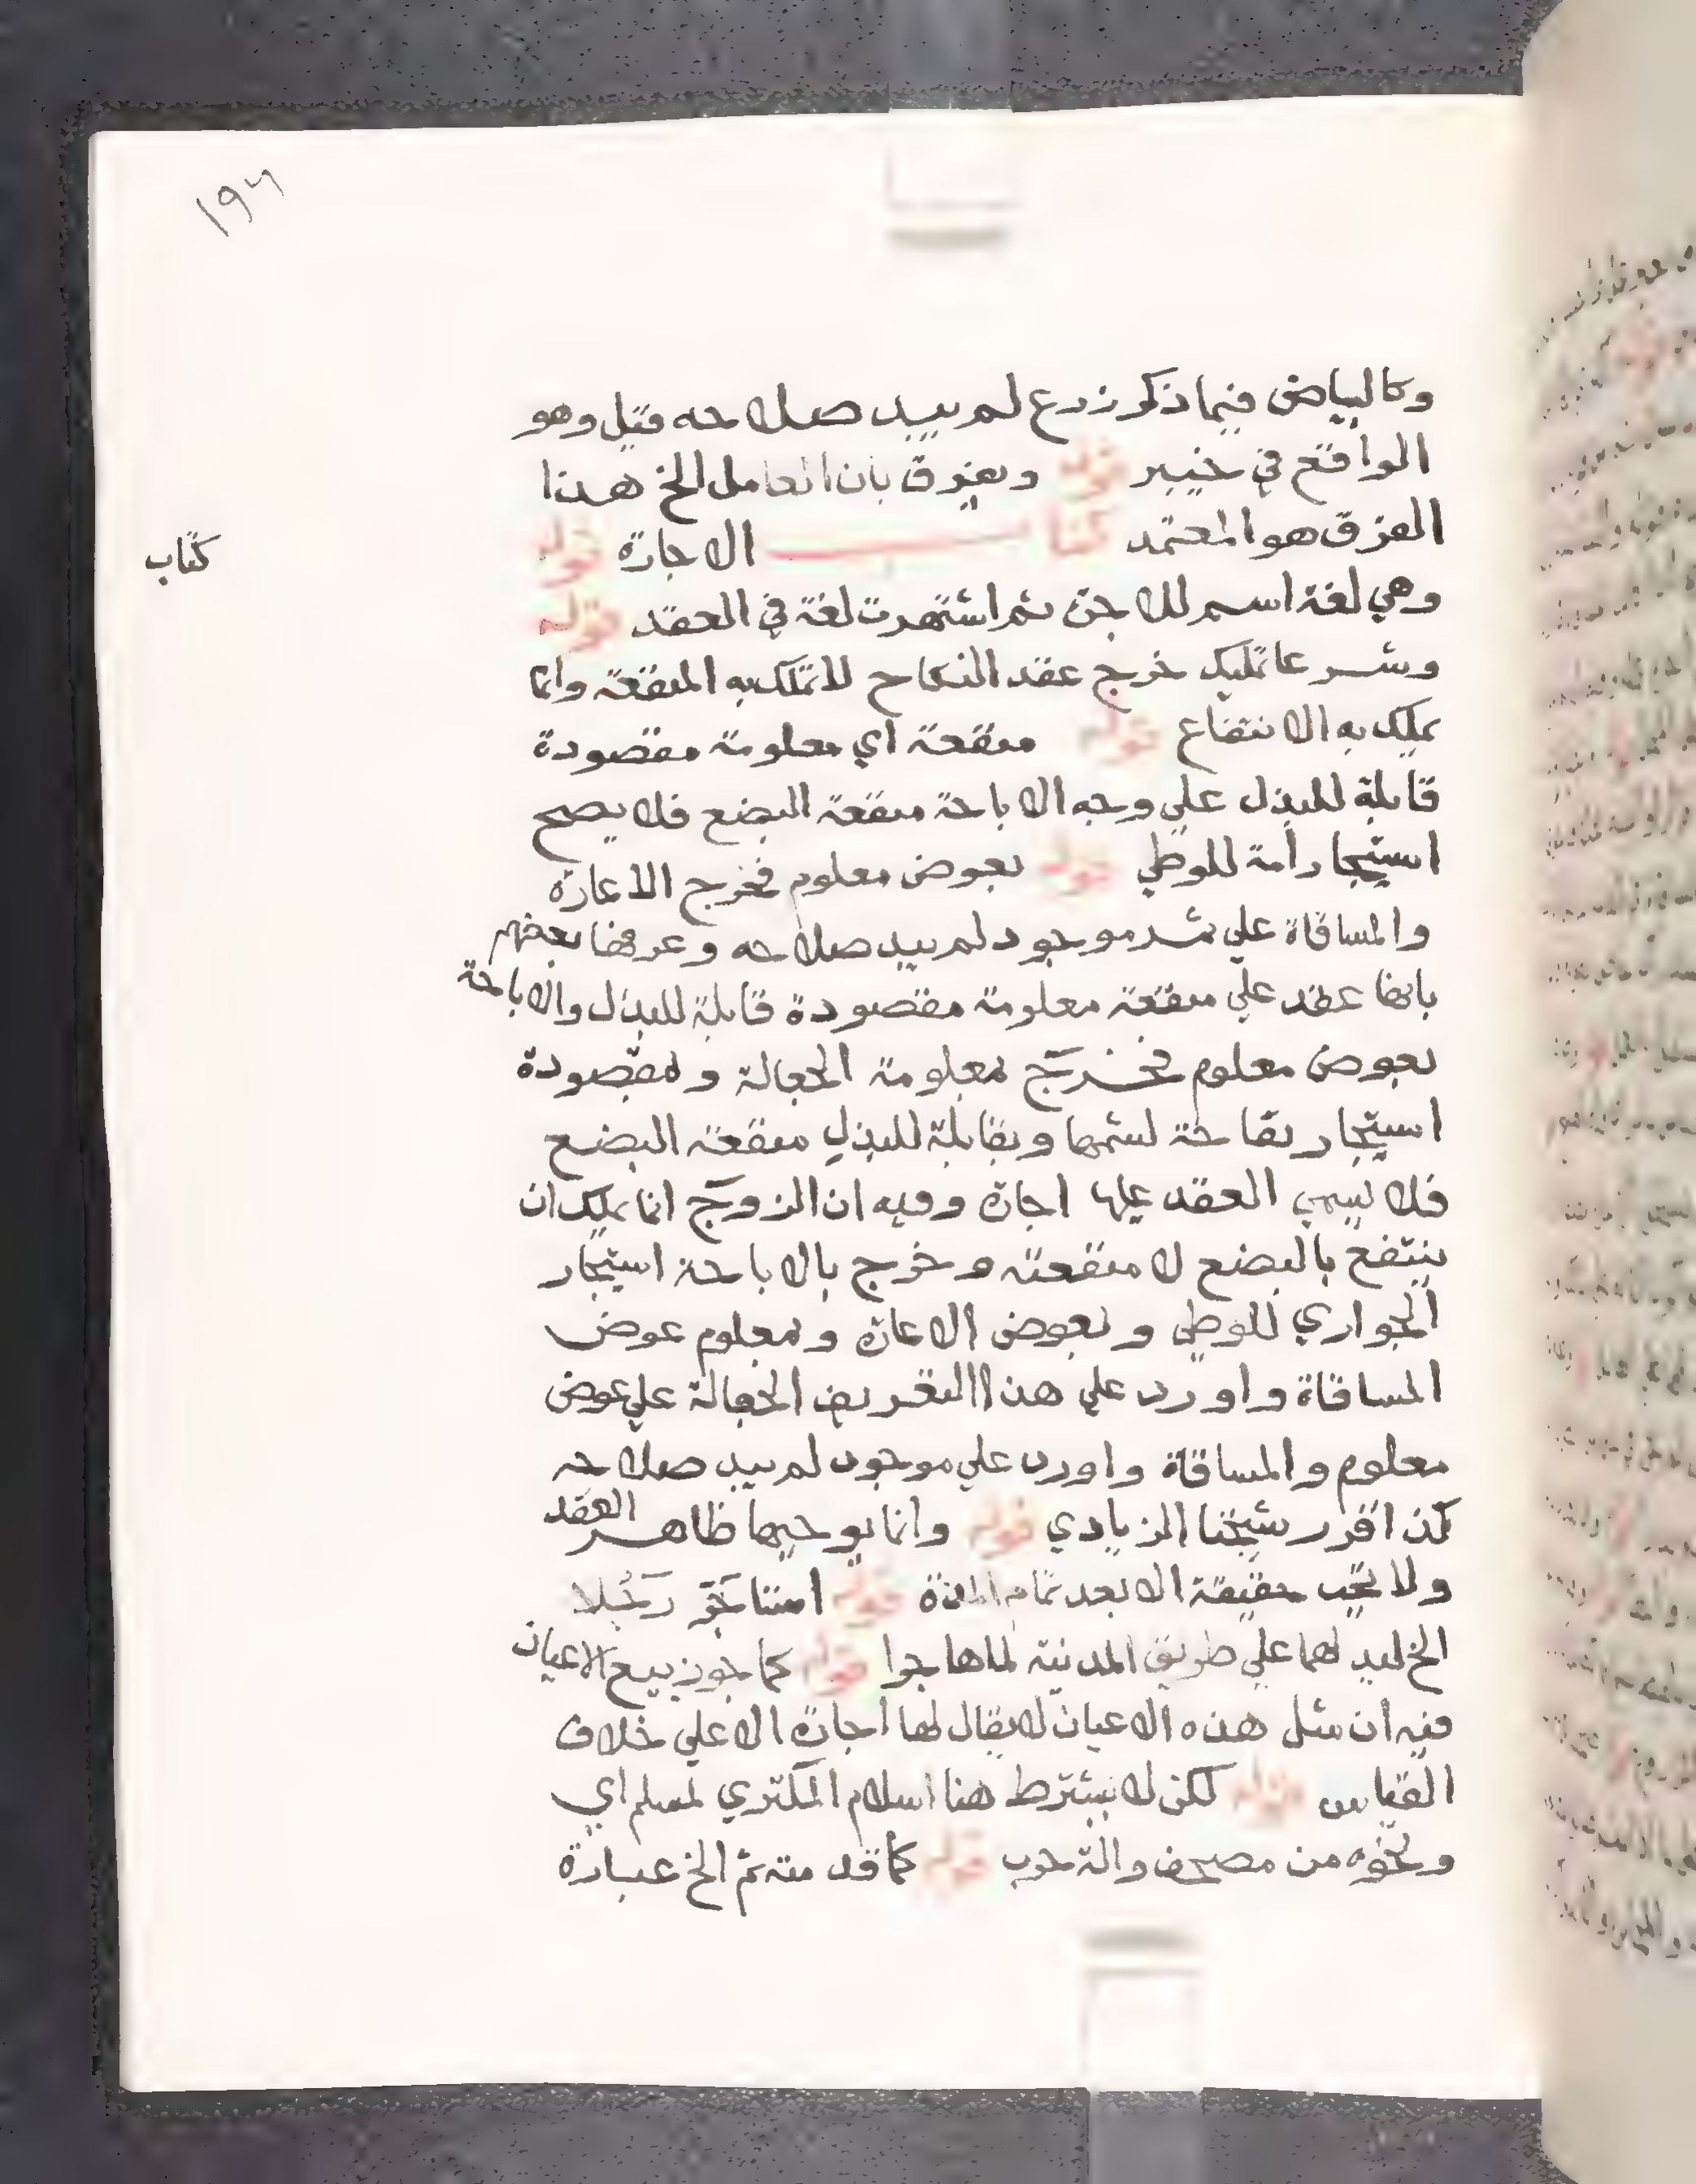 ١٩٦
وكالبياض فيما ذكر زرع لم يبد صلاحه قبل وهو
الواقع في خيبر قوله ويفرق بان العامل الخ هذا
الفرق هو المعتمد كتاب الاجارة قوله
كتاب
وهي لغة اسم للاجرة ثم اشتهرت لغة في العقد قوله
وشرعا تمليك خرج عقد النكاح لا تملك به المنفعة وانما
يملك به الانتفاع قوله منفعة اي معلومة مقصودة
قابلة للبذل علي وجه الاباحة منفعة البضع فلا يصح
استيجار امة للوطي قوله بعوض معلوم فخرج الاعارة
والمساقاة علي ثمر موجود لم يبد صلاحه وعرفها بعضهم
بانها عقد علي منفعة معلومة مقصودة قابلة للبذل والاباحة
بعوض معلوم فخرج بمعلومة الجعالة وبمقصودة
استيجار تفاحة لشمها وبقابلة للبذل منفعة البضع
فلا يسمي العقد عليها اجارة وفيه ان الزوج انما يملك ان
ينتفع بالبضع لا منفعته وخرج بالاباحة استيجار
الجواري للوطي وبعوض الاعارة وبمعلوم عوض
المساقاة واورد علي هذا التعريف الجعالة علي عوض
معلوم والمساقاة واورد علي موجود لم يبد صلاحه
كذا قرر شيخنا الزيادي قوله وانما يوجبها ظاهر العقد
ولا تجب حقيقة الا بعد تمام المدة قوله استاجر رجلا
الخ ليد لهما علي طريق المدينة لما هاجرا قوله كما جوز بيع الاعيان
فيه ان مثل هذه الاعيان لا يقال لها اجارة الا علي خلاف
القياس قوله لكن لا يشترط هنا اسلام المكتري لمسلم اي
ونحوه من مصحف والة حرب قوله كما قدمته ثم الخ عبارة